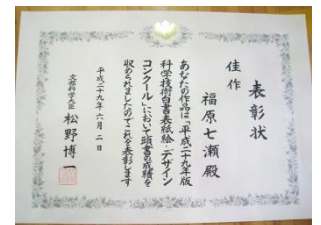 表彰状
佳作
福原七瀬殿
あなたの作品は「平成二十九年版
科学技術白書表紙絵・デザイン
コンクール」において頭書の成績を
収められましたのでこれを表彰します
平成二十九年六月二日
文部科学大臣 松野博一